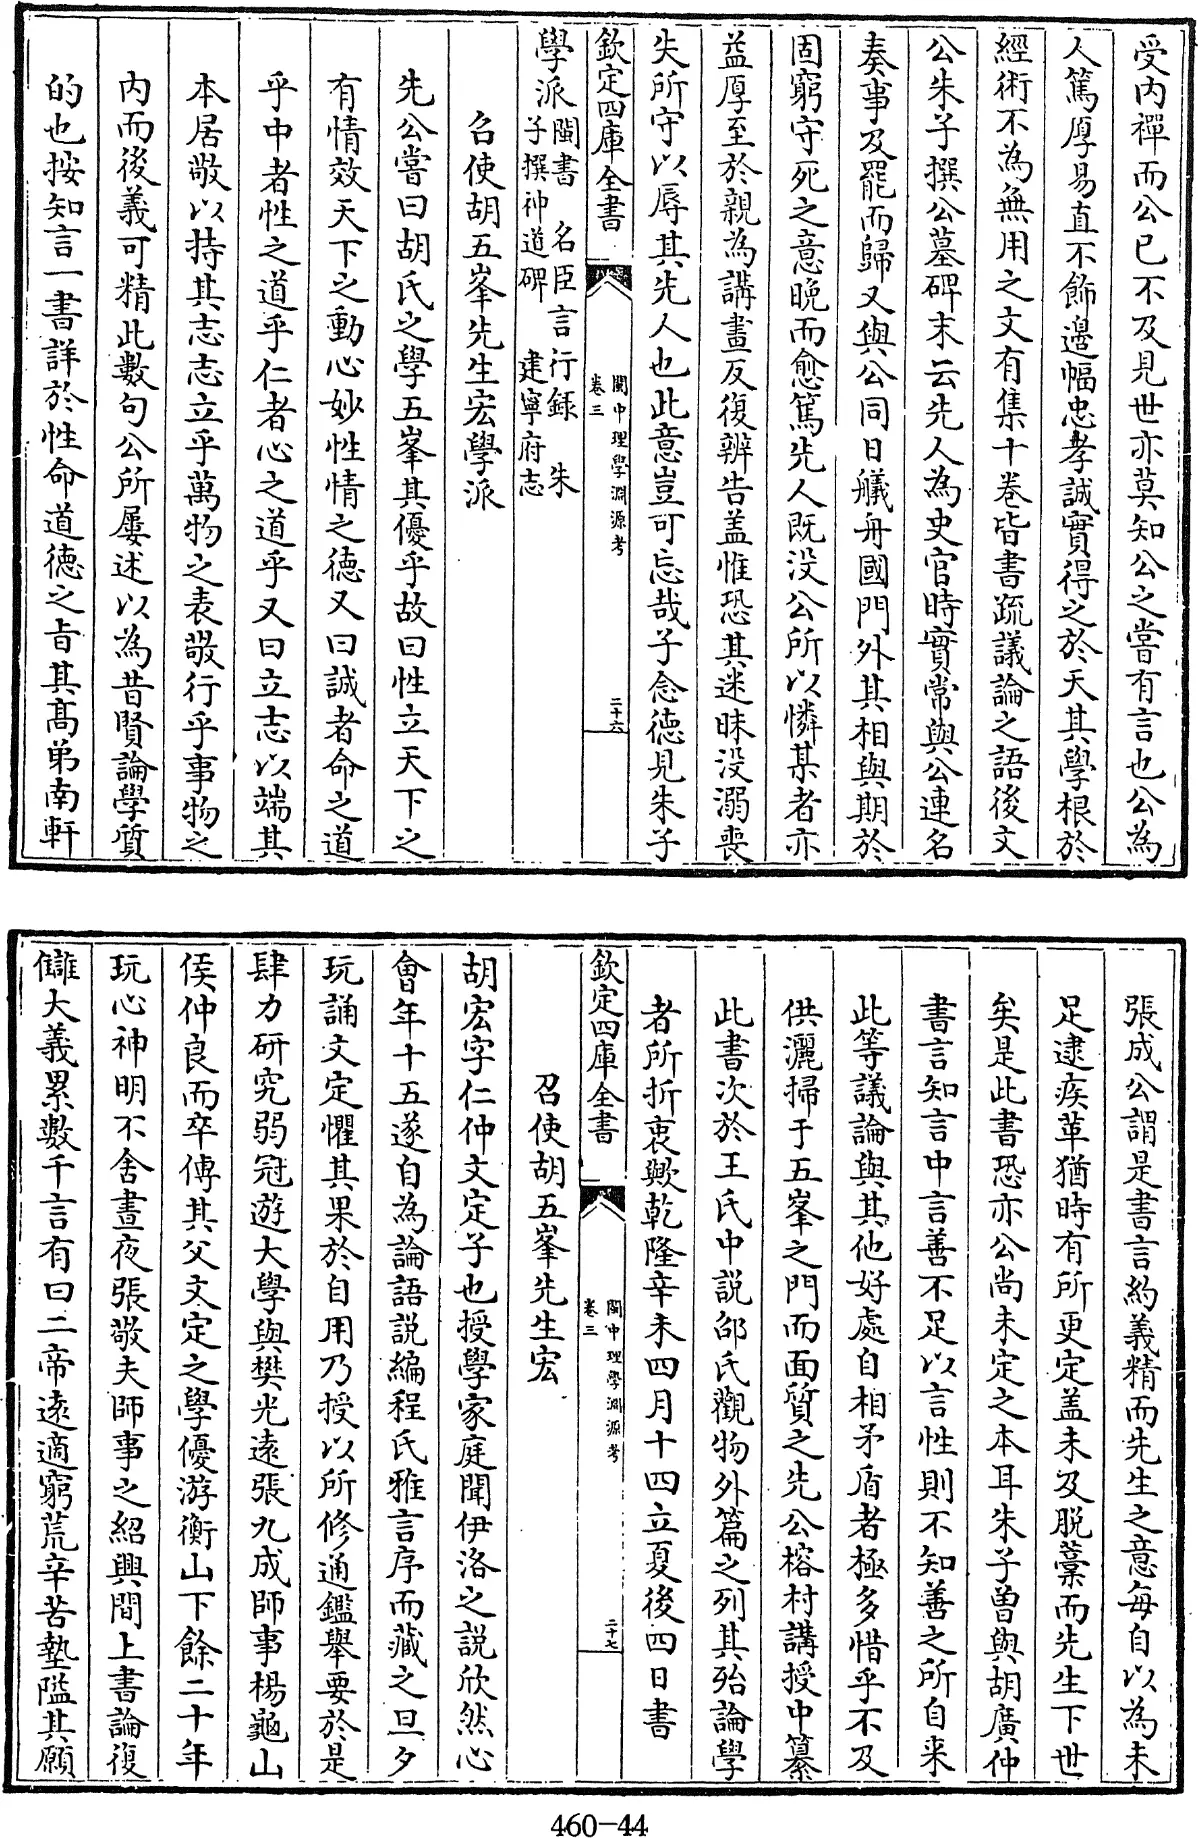 受內禪而公已不及見世亦莫知公之嘗有言也公為
人篤厚易直不飾邊幅忠孝誠實得之於天其學根於
經術不為無用之文有集十卷皆書疏議論之語後文
公朱子撰公墓碑末云先人為史官時實常與公連名
奏事及罷而歸又與公同日艤舟國門外其相與期於
固窮守死之意晚而愈篤先人既沒公所以憐某者亦
益厚至於親為講畫反復辨告盖惟恐其迷昧沒溺喪
失所守以辱其先人也此意豈可忘哉子念德見朱子
欽定四庫全書
閩中理學淵源考
卷三
二十六
學派閩書　名臣言行錄　朱
子撰神道碑　建寧府志
召使胡五峯先生宏學派
先公嘗曰胡氏之學五峯其優乎故曰性立天下之
有情效天下之動心妙性情之德又曰誠者命之道
乎中者性之道乎仁者心之道乎又曰立志以端其
本居敬以持其志志立乎萬物之表敬行乎事物之
內而後義可精此數句公所屢述以為昔賢論學質
的也按知言一書詳於性命道德之旨其高弟南軒
張成公謂是書言約義精而先生之意每自以為未
足逮疾革猶時有所更定盖未及脫藁而先生下世
矣是此書恐亦公尚未定之本耳朱子曾與胡廣仲
書言知言中言善不足以言性則不知善之所自来
此等議論與其他好處自相矛盾者極多惜乎不及
供灑掃于五峯之門而面質之先公榕村講授中纂
此書次於王氏中說邵氏觀物外篇之列其殆論學
者所折衷歟乾隆辛未四月十四立夏後四日書
欽定四庫全書
閩中理學淵源考
卷三
二十七
召使胡五峯先生宏
胡宏字仁仲文定子也授學家庭聞伊洛之說欣然心
會年十五遂自為論語說編程氏雅言序而藏之旦夕
玩誦文定懼其果於自用乃授以所修通鑑舉要於是
肆力研究弱冠遊大學與樊光遠張九成師事楊龜山
侯仲良而卒傳其父文定之學優游衡山下餘二十年
玩心神明不舍晝夜張敬夫師事之紹興間上書論復
讎大義累數千言有曰二帝遠適窮荒辛苦墊隘其願
460-44